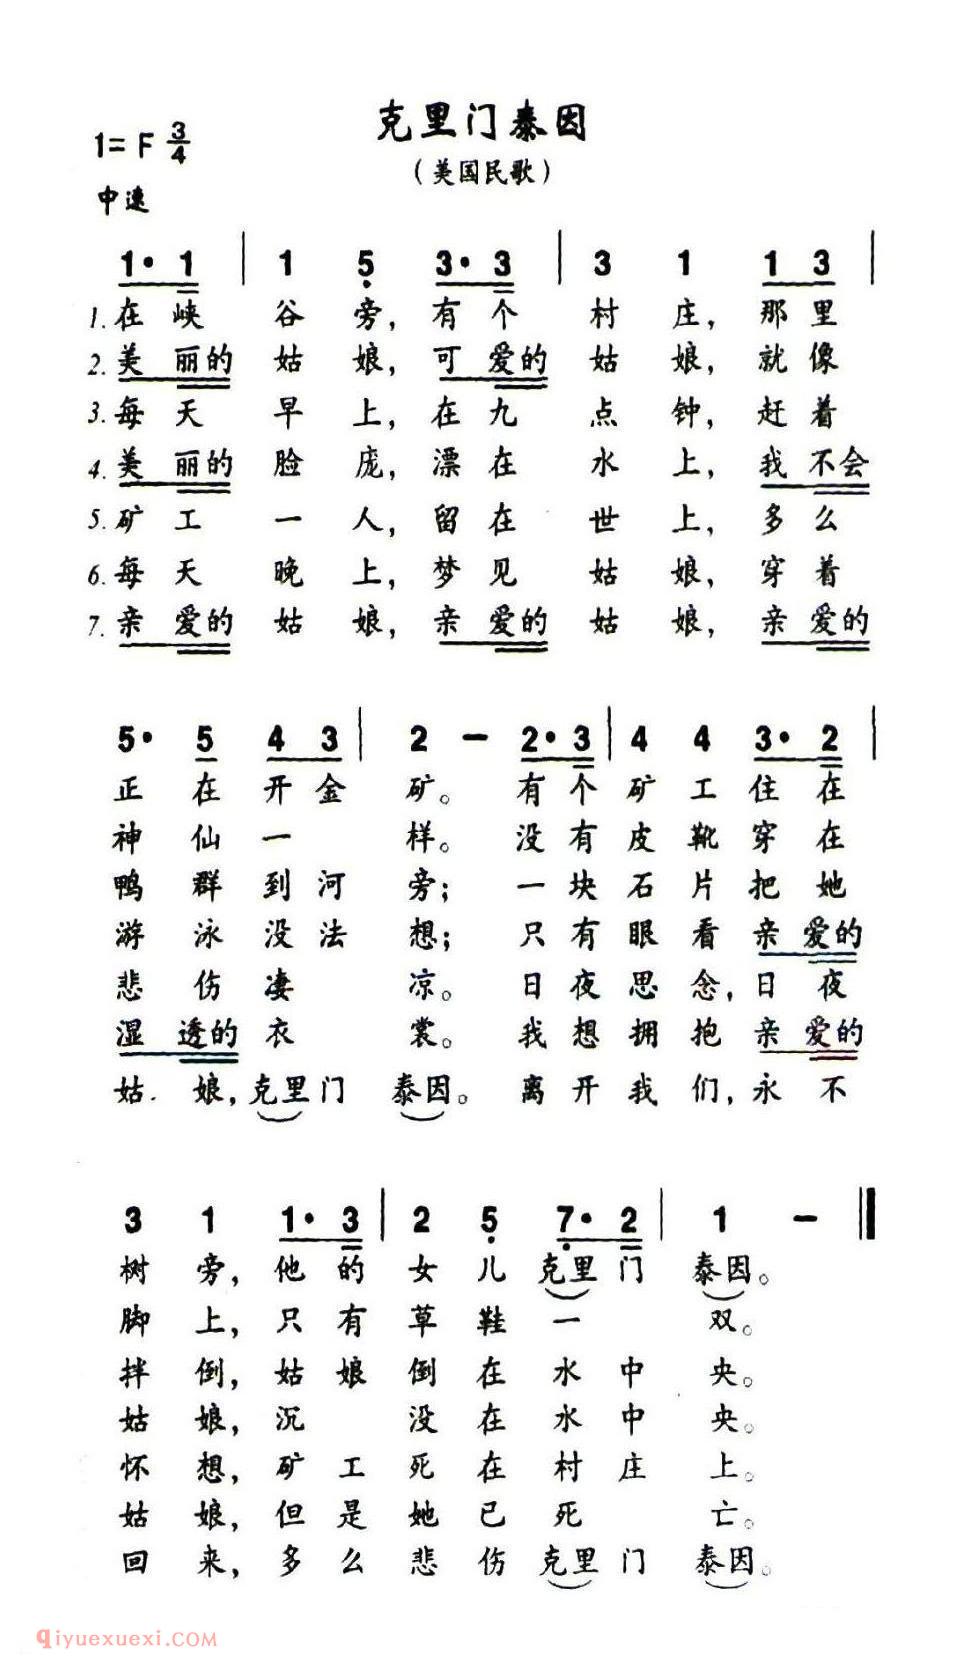 克里门泰因
1= F 3/4
（美国民歌）
中速
1· 1 | 1 5̣ 3· 3 | 3 1 1 3 |
1. 在 峡 谷 旁，有 个 村 庄，那 里
2. 美 丽的 姑 娘，可 爱的 姑 娘，就 像
3. 每 天 早 上，在 九 点 钟，赶 着
4. 美 丽的 脸 庞，漂 在 水 上，我 不会
5. 矿 工 一 人，留 在 世 上，多 么
6. 每 天 晚 上，梦 见 姑 娘，穿 着
7. 亲 爱的 姑 娘，亲 爱的 姑 娘，亲 爱的
5· 5 4 3 | 2 － 2· 3 | 4 4 3· 2 |
正 在 开 金 矿。 有 个 矿 工 住 在
神 仙 一 样。 没 有 皮 靴 穿 在
鸭 群 到 河 旁； 一 块 石 片 把 她
游 泳 没 法 想； 只 有 眼 看 亲 爱的
悲 伤 凄 凉。 日 夜 思 念，日 夜
湿 透的 衣 裳。 我 想 拥 抱 亲 爱的
姑. 娘，克里门 泰因。 离 开 我 们，永 不
3 1 1· 3 | 2 5̣ 7̣· 2 | 1 － ‖
树 旁，他 的 女 儿 克里门 泰因。
脚 上，只 有 草 鞋 一 双。
拌 倒，姑 娘 倒 在 水 中 央。
姑 娘，沉 没 在 水 中 央。
怀 想，矿 工 死 在 村 庄 上。
姑 娘，但 是 她 已 死 亡。
回 来，多 么 悲 伤 克里门 泰因。
qiyuexuexi.COM